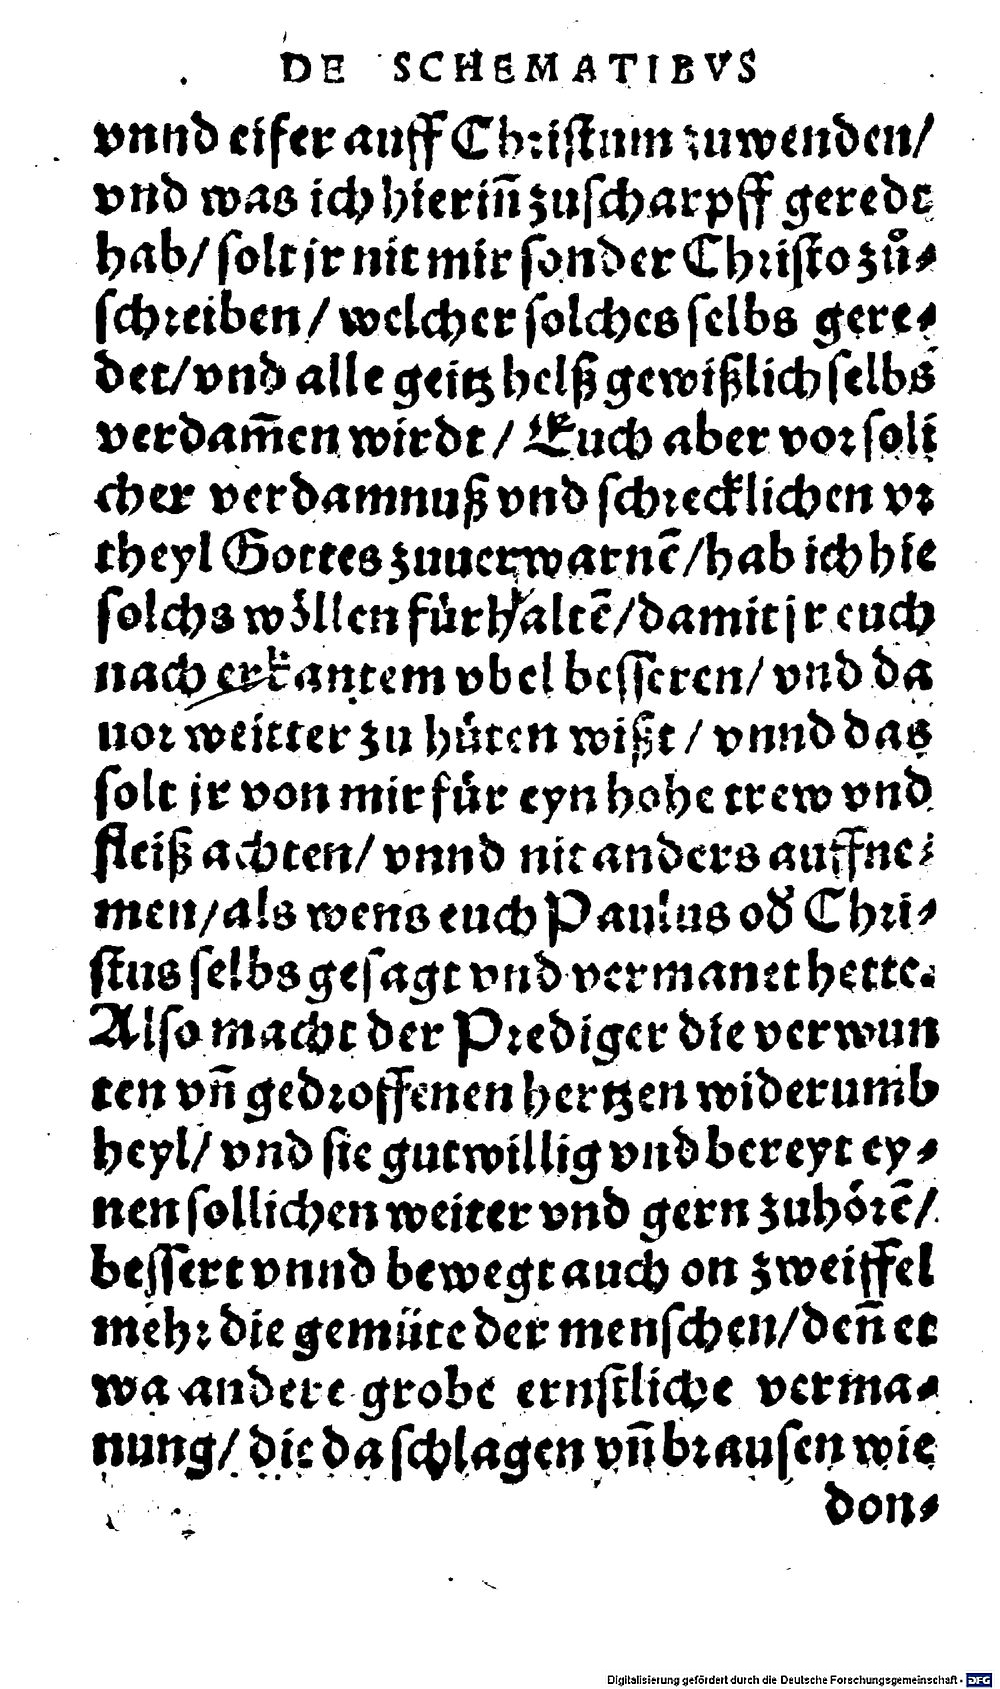 DE SCHEMATIBVS
vnnd eifer auff Christum zuwenden/
vnd was ich hierin̄ zuscharpff geredt
hab/ solt jr nit mir sonder Christo zů⸗
schreiben/ welcher solches selbs gere⸗
det/ vnd alle geitz helß gewißlich selbs
verdam̄en wirdt/ Euch aber vor soli
cher verdamnuß vnd schrecklichen vr
theyl Gottes zuuerwarnē/ hab ich hie
solchs wöllen fürhaltē/ damit jr euch
nach erkantem vbel besseren/ vnd da
uor weitter zu hüten wißt/ vnnd das
solt jr von mir für eyn hohe trew vnd
fleiß achten/ vnnd nit anders auffne⸗
men/ als wens euch Paulus od̕ Chri⸗
stus selbs gesagt vnd vermanet hette.
Also macht der Prediger die verwun
ten vn̄ gedroffenen hertzen widerumb
heyl/ vnd sie gutwillig vnd bereyt ey⸗
nen sollichen weiter vnd gern zuhörē/
bessert vnnd bewegt auch on zweiffel
mehr die gemüte der menschen/ den̄ et
wa andere grobe ernstliche verma⸗
nung/ die da schlagen vn̄ brausen wie
don⸗
Digitalisierung gefördert durch die Deutsche Forschungsgemeinschaft - DFG